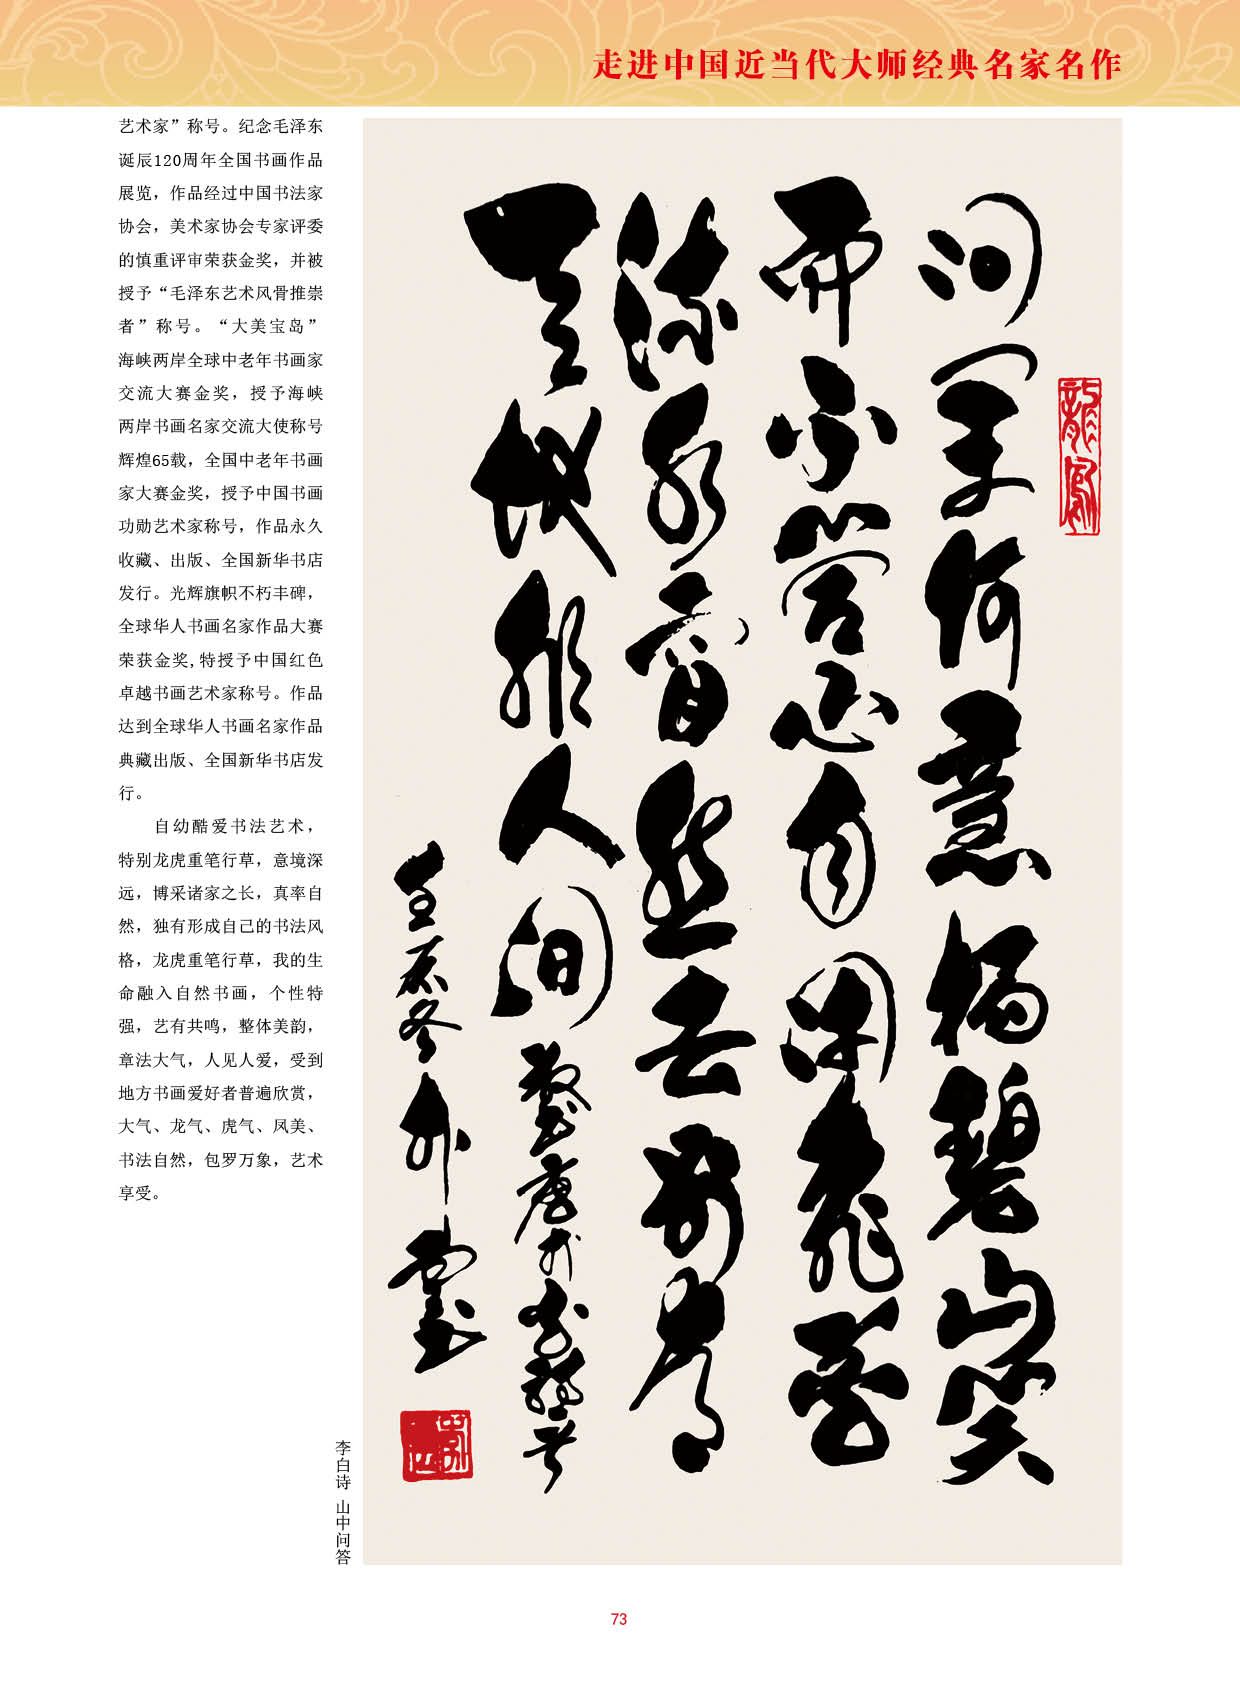 走进中国近当代大师经典名家名作
艺术家”称号。纪念毛泽东
诞辰120周年全国书画作品
展览，作品经过中国书法家
协会，美术家协会专家评委
的慎重评审荣获金奖，并被
授予“毛泽东艺术风骨推崇
者”称号。“大美宝岛”
海峡两岸全球中老年书画家
交流大赛金奖，授予海峡
两岸书画名家交流大使称号
辉煌65载，全国中老年书画
家大赛金奖，授予中国书画
功勋艺术家称号，作品永久
收藏、出版、全国新华书店
发行。光辉旗帜不朽丰碑，
全球华人书画名家作品大赛
荣获金奖,特授予中国红色
卓越书画艺术家称号。作品
达到全球华人书画名家作品
典藏出版、全国新华书店发
行。
自幼酷爱书法艺术，
特别龙虎重笔行草，意境深
远，博采诸家之长，真率自
然，独有形成自己的书法风
格，龙虎重笔行草，我的生
命融入自然书画，个性特
强，艺有共鸣，整体美韵，
章法大气，人见人爱，受到
地方书画爱好者普遍欣赏，
大气、龙气、虎气、凤美、
书法自然，包罗万象，艺术
享受。
龍鳳
问君何意栖碧山笑
而不答心自闲花
流水窅然去别有
天地非人间
李白诗 山中问答
73